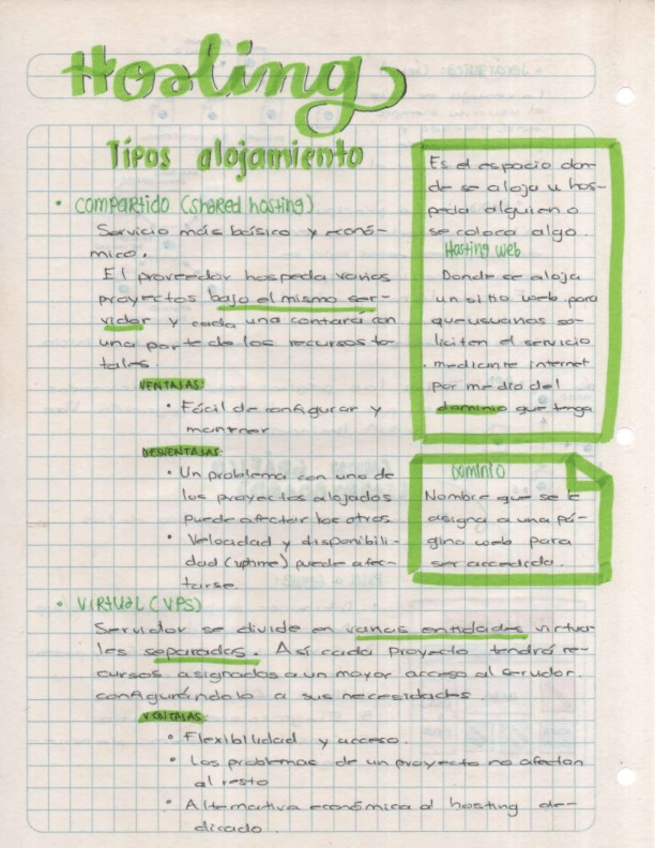 Hosting
Tipos alojamiento
• Compartido (shared hosting)
Servicio más básico y econó-
mico.
El proveedor hospeda varios
proyectos bajo el mismo ser-
vidor y cada una contará con
una parte de los recursos to-
tales.
VENTAJAS:
• Fácil de configurar y
mantener
DESVENTAJAS:
• Un problema con uno de
los proyectos alojados
puede afectar los otros
• Velocidad y disponibili-
dad (uptime) puede afec-
tarse.
Es el espacio don-
de se aloja u hos-
peda alguien o
se coloca algo.
Hosting web
Donde se aloja
un sitio web para
que usuarios so-
liciten el servicio
mediante internet
por medio del
dominio que tenga
Dominio
Nombre que se le
asigna a una pá-
gina web para
ser accedida.
• VIRTUAL (VPS)
Servidor se divide en varias entidades virtua-
les separadas. Así cada proyecto tendrá re-
cursos asignados a un mayor acceso al servidor.
configurándolo a sus necesidades.
VENTAJAS:
• Flexibilidad y acceso.
• Los problemas de un proyecto no afectan
al resto
• Alternativa económica al hosting de-
dicado.